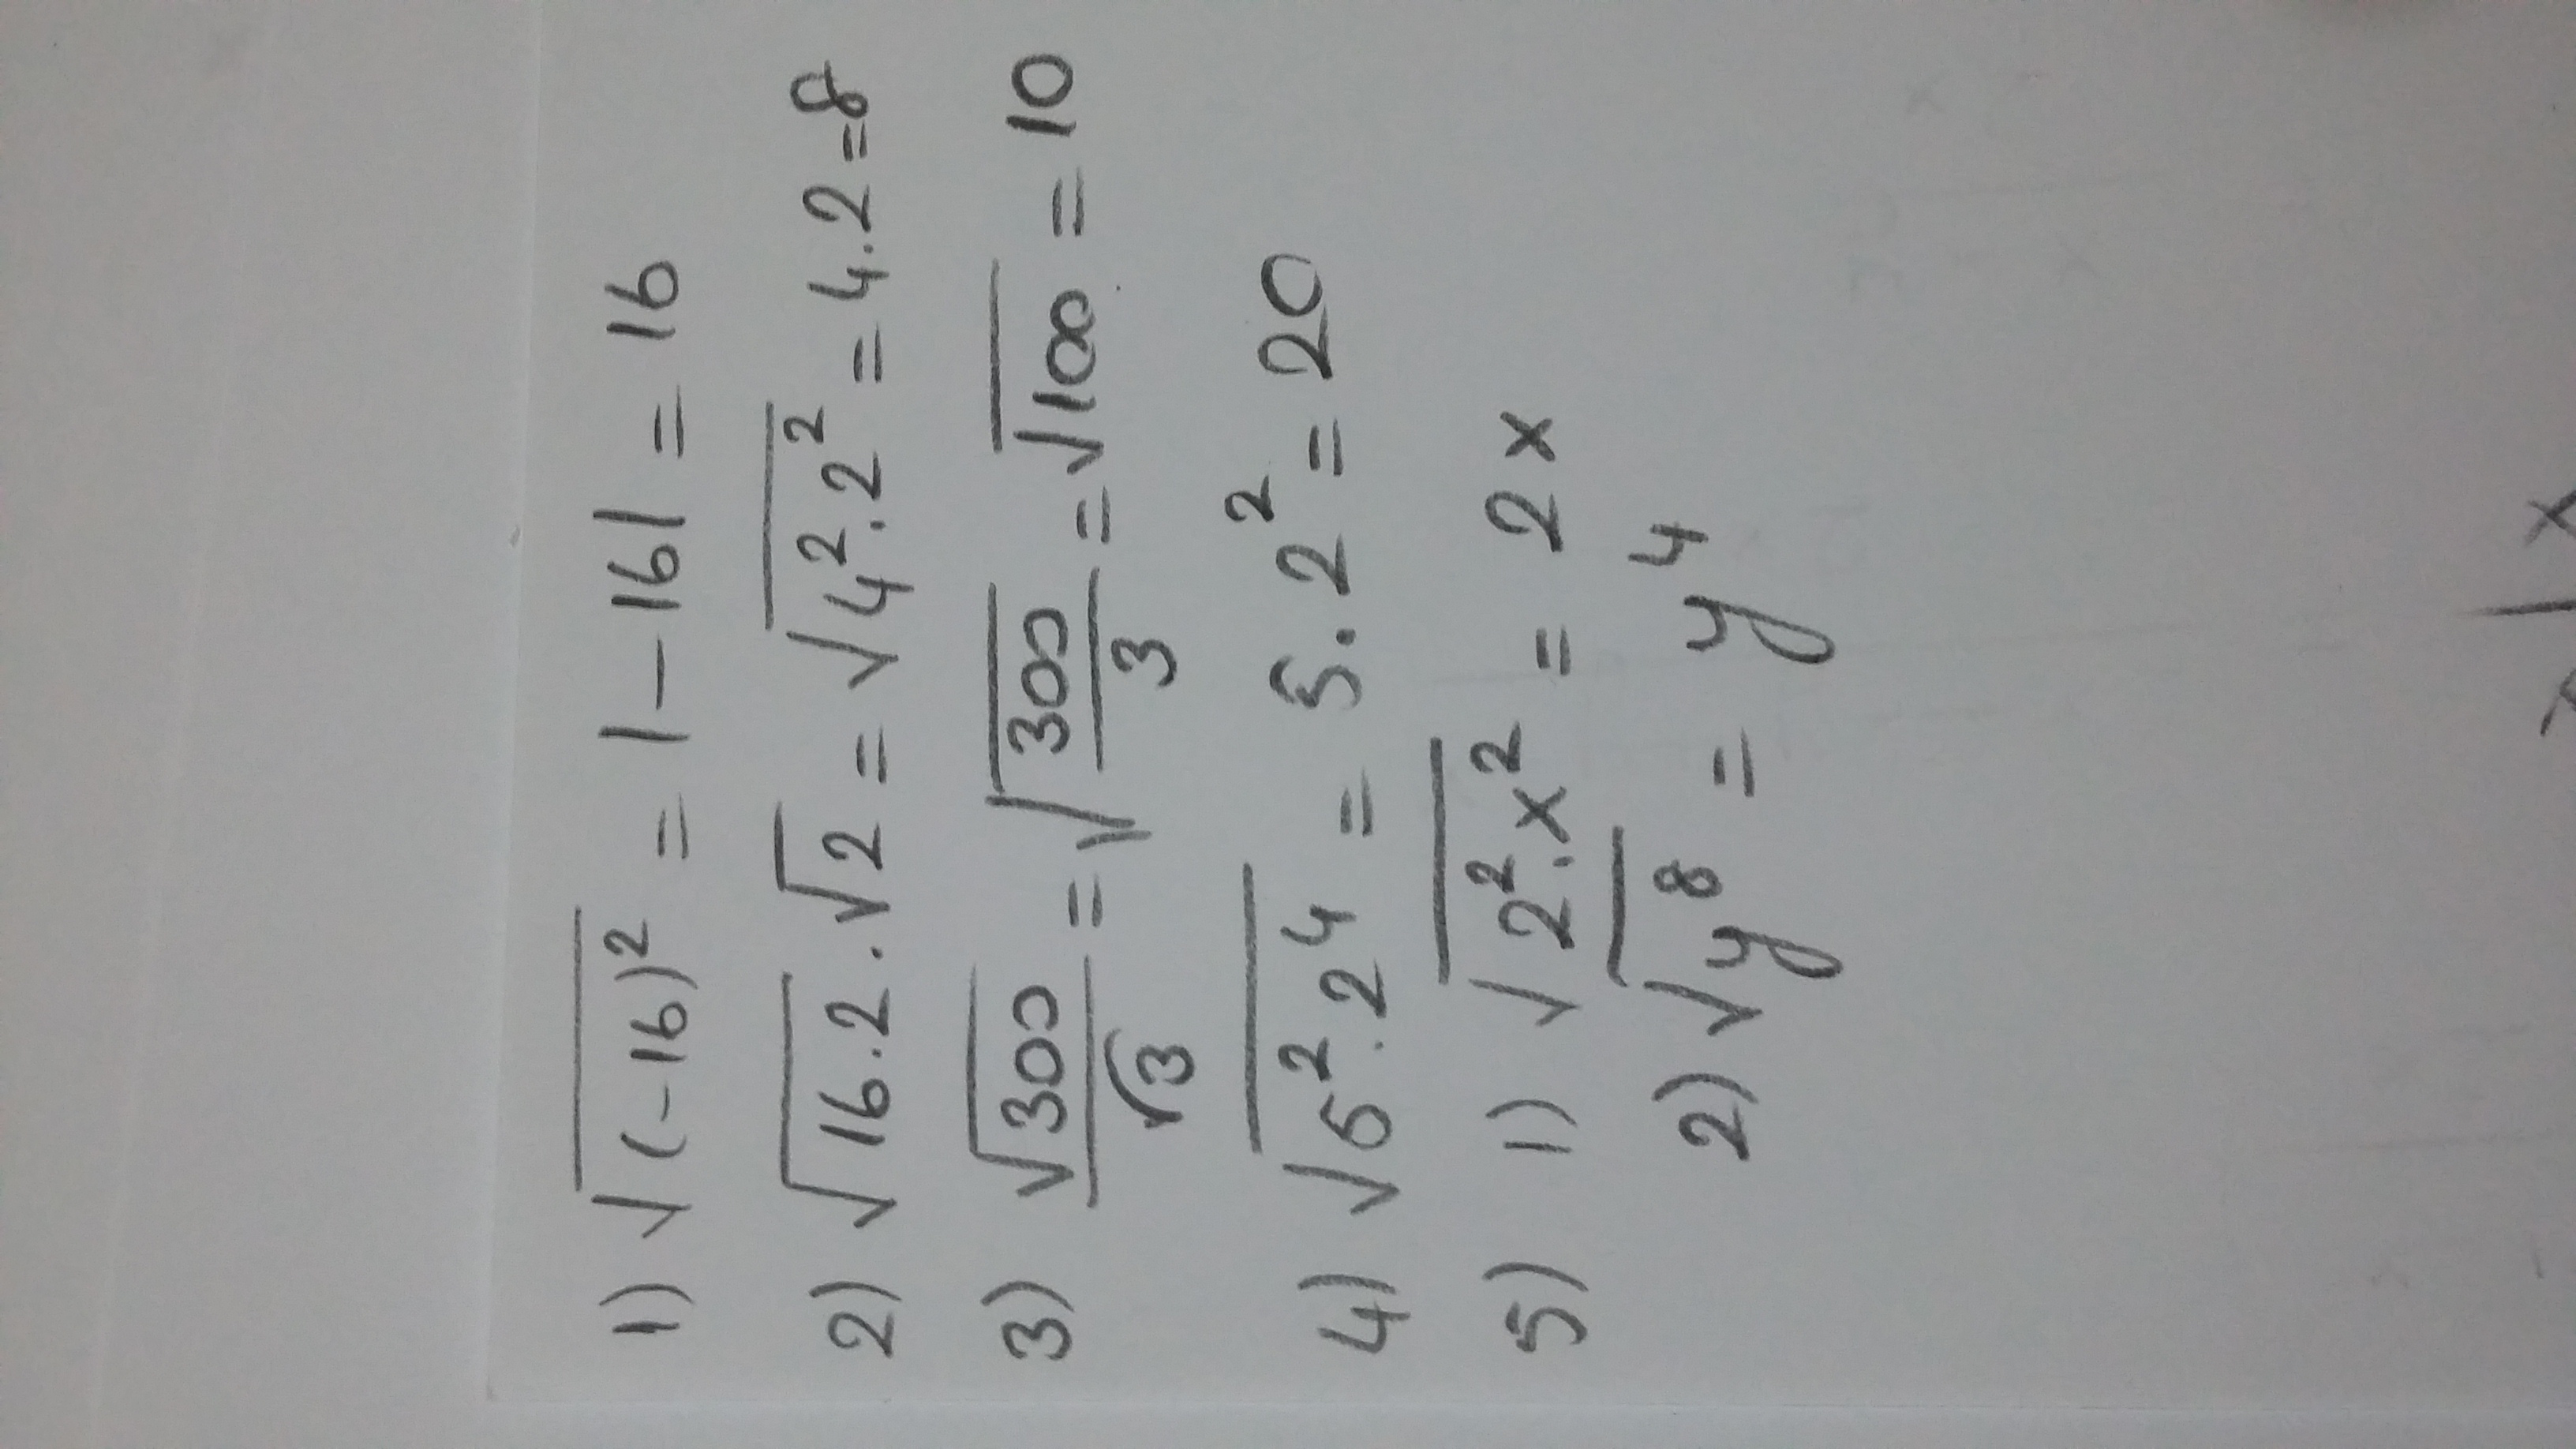 1) √(-16)² = |-16| = 16
2) √16.2 . √2 = √4².2² = 4.2=8
3) √300/√3 = √300/3 = √100 = 10
4) √5².2⁴ = 5.2² = 20
5) 1) √2².x² = 2x
2) √y⁸ = y⁴